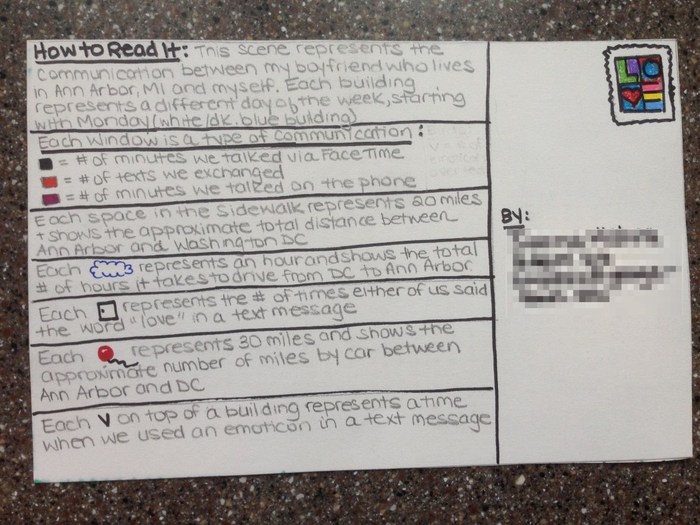 How to Read It: This scene represents the
communication between my boyfriend who lives
in Ann Arbor, MI and myself. Each building
represents a different day of the week, starting
with Monday (white/dk. blue building)
Each window is a type of communication:
= # of minutes we talked via FaceTime
= # of texts we exchanged
= # of minutes we talked on the phone
Each space in the sidewalk represents 20 miles
+ shows the approximate total distance between
Ann Arbor and Washington DC
Each represents an hour and shows the total
# of hours it takes to drive from DC to Ann Arbor
Each represents the # of times either of us said
the word "love" in a text message
Each represents 30 miles and shows the
approximate number of miles by car between
Ann Arbor and DC
Each V on top of a building represents a time
when we used an emoticon in a text message
LO
VE
BY: